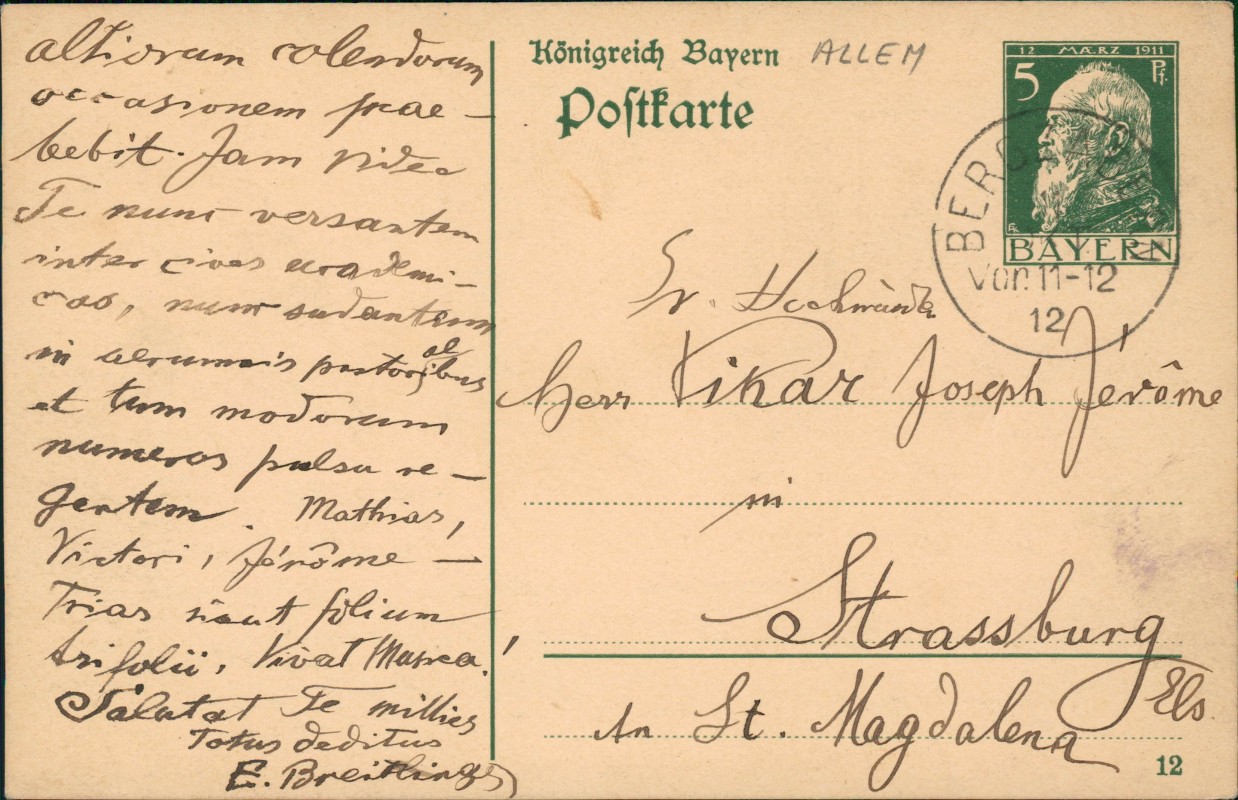 altiorum colendorum
occasionem prae-
bebit. Jam video
Te nunc versantem
inter cives academi-
cos, nunc sudantem
in aerumnis pastoralibus
et tum modorum
numeros pulsu re-
gentem. Mathias,
Victori, Jérôme -
Trias sicut folium
trifolii. Vivat Musica!
Salutat Te millies
Totus deditus
E. Breitlinger
Königreich Bayern
ALLEM
Postkarte
12 MÆRZ 1911
5 Pf.
BAYERN
Vor. 11-12
12
Sr. Hochwürden
Herr Vikar Joseph Jérôme
in
Strassburg
Els.
An St. Magdalena
12